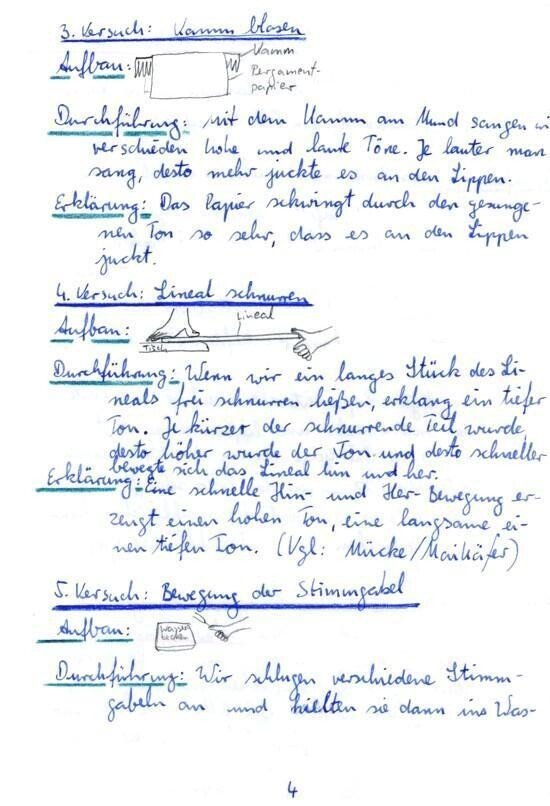 3. Versuch: Kamm blasen
Aufbau:
Kamm
Pergament-
papier
Durchführung: Mit dem Kamm am Mund sangen wi
verschieden hohe und laute Töne. Je lauter man
sang, desto mehr juckte es an den Lippen.
Erklärung: Das Papier schwingt durch den gesunge-
nen Ton so sehr, dass es an den Lippen
juckt.
4. Versuch: Lineal schnurren
Aufbau:
Lineal
Tisch
Durchführung: Wenn wir ein langes Stück des Li-
neals frei schnurren ließen, erklang ein tiefer
Ton. Je kürzer der schnurrende Teil wurde,
desto höher wurde der Ton und desto schneller
bewegte sich das Lineal hin und her.
Erklärung: Eine schnelle Hin- und Her-Bewegung er-
zeugt einen hohen Ton, eine langsame ei-
nen tiefen Ton. (Vgl: Mücke/Maikäfer)
5. Versuch: Bewegung der Stimmgabel
Aufbau:
Wasser
becken
Durchführung: Wir schlugen verschiedene Stimm-
gabeln an und hielten sie dann ins Was-
4